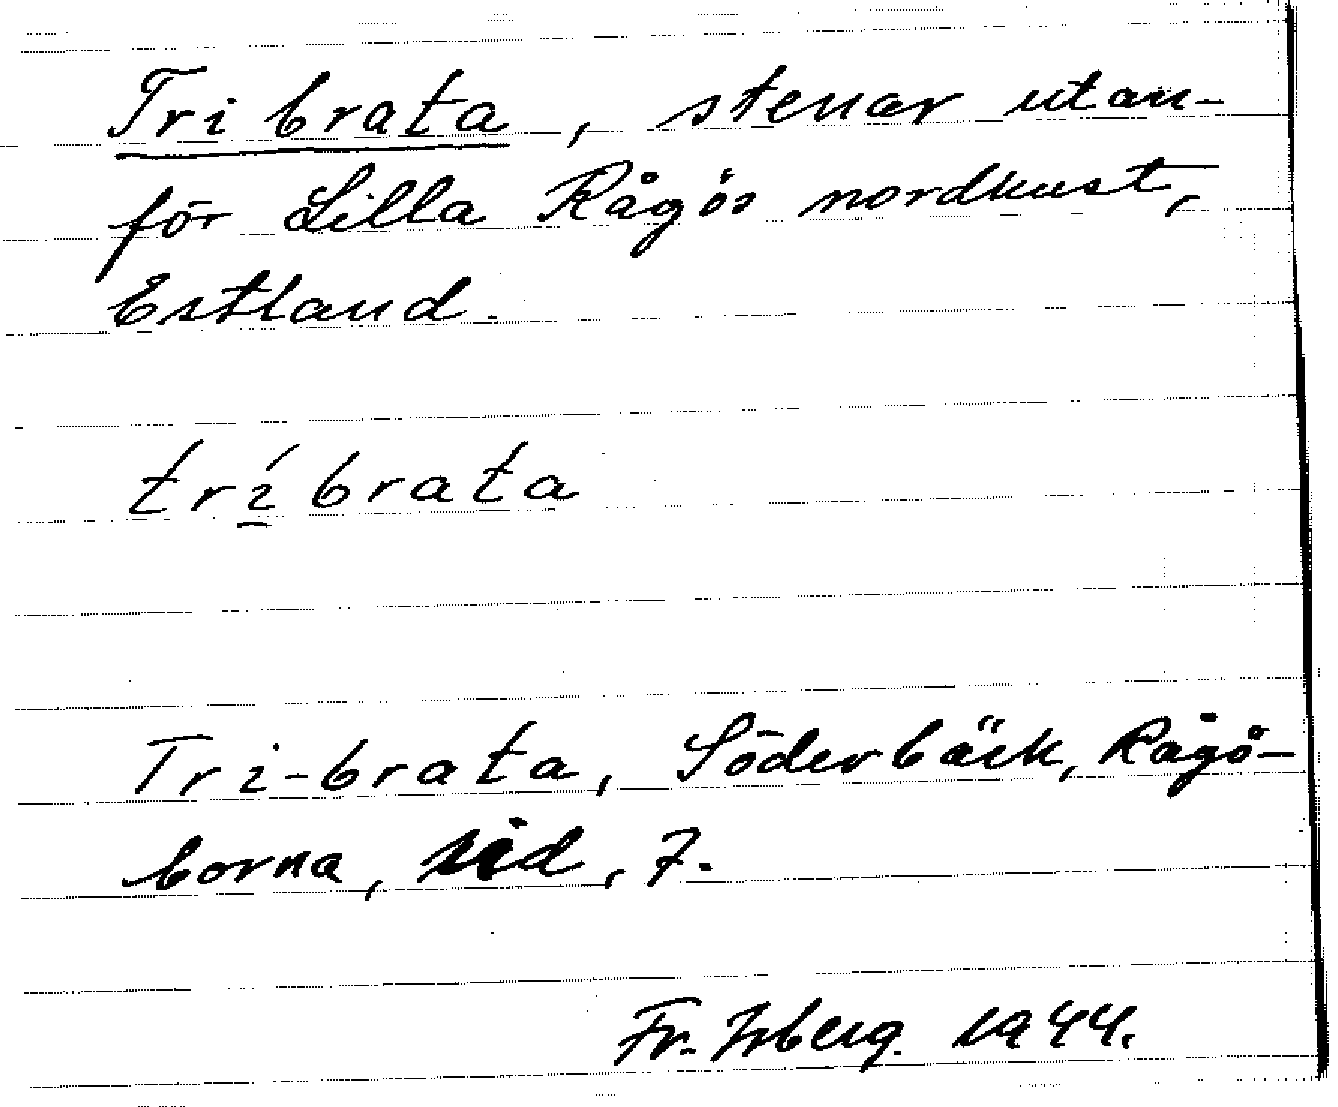 Tri brata, stenar utan-
för Lilla Rågös nordkust,
Estland.
trí brata
Tri-brata, Söderbäck, Rågö-
borna, sid, 7.
Fr. Isberg. 1944.